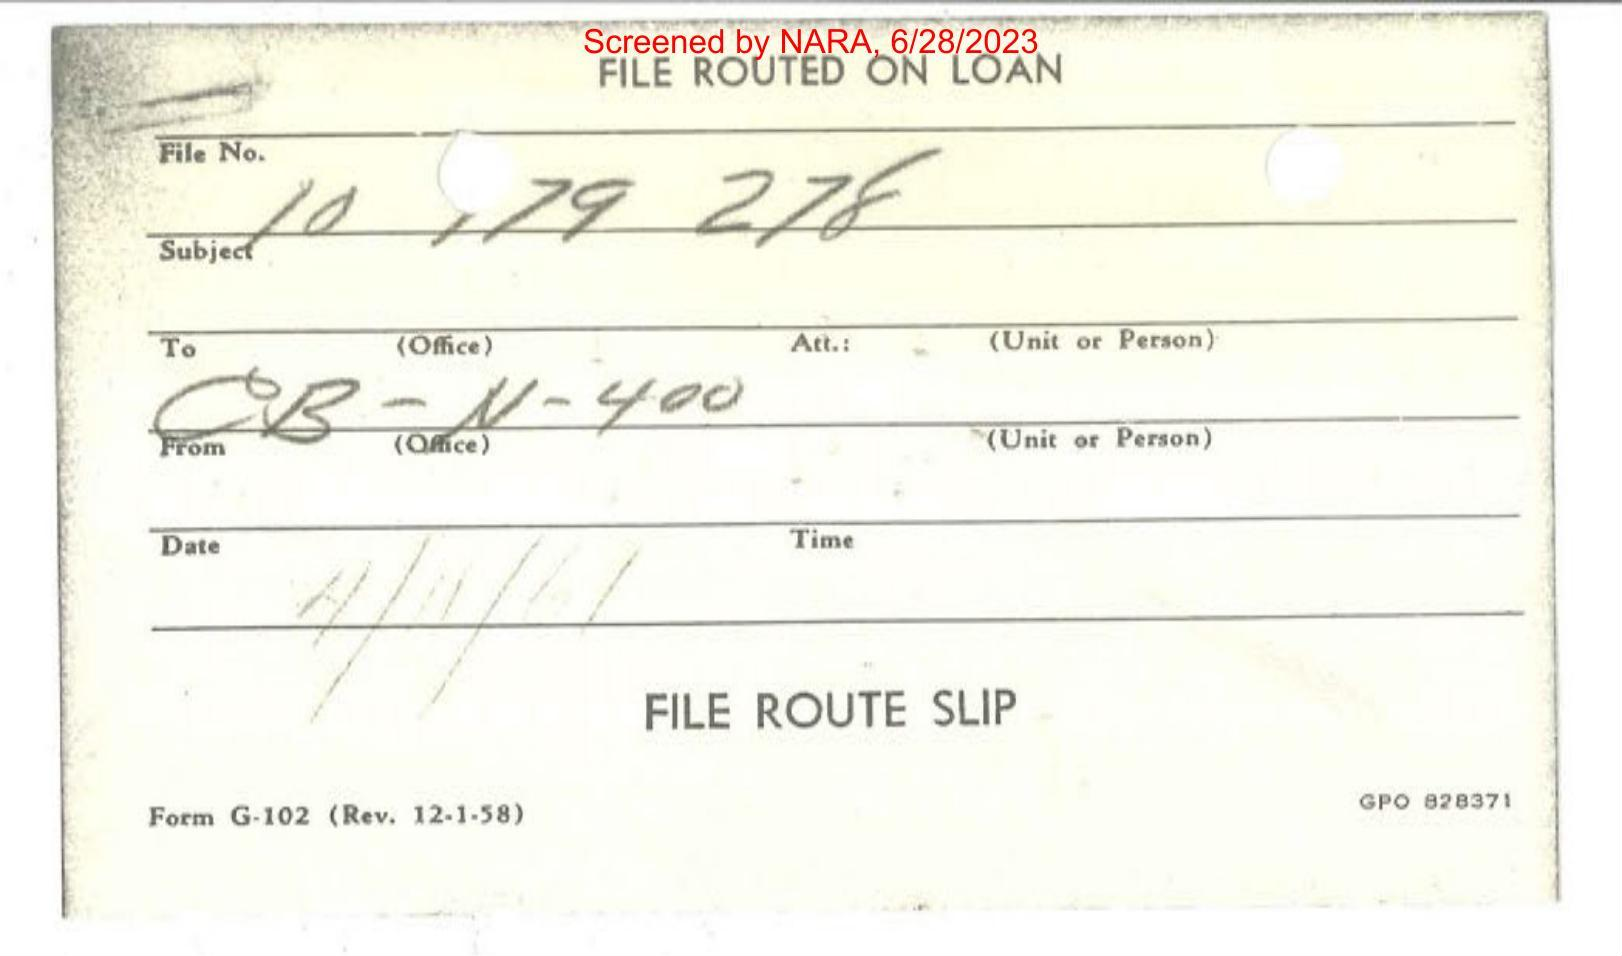 Screened by NARA, 6/28/2023
FILE ROUTED ON LOAN
File No.
10 179 278
Subject
To (Office) Att.: (Unit or Person)
CB - N-400
From (Office) (Unit or Person)
Date Time
4/11/61
FILE ROUTE SLIP
Form G-102 (Rev. 12-1-58) GPO 828371